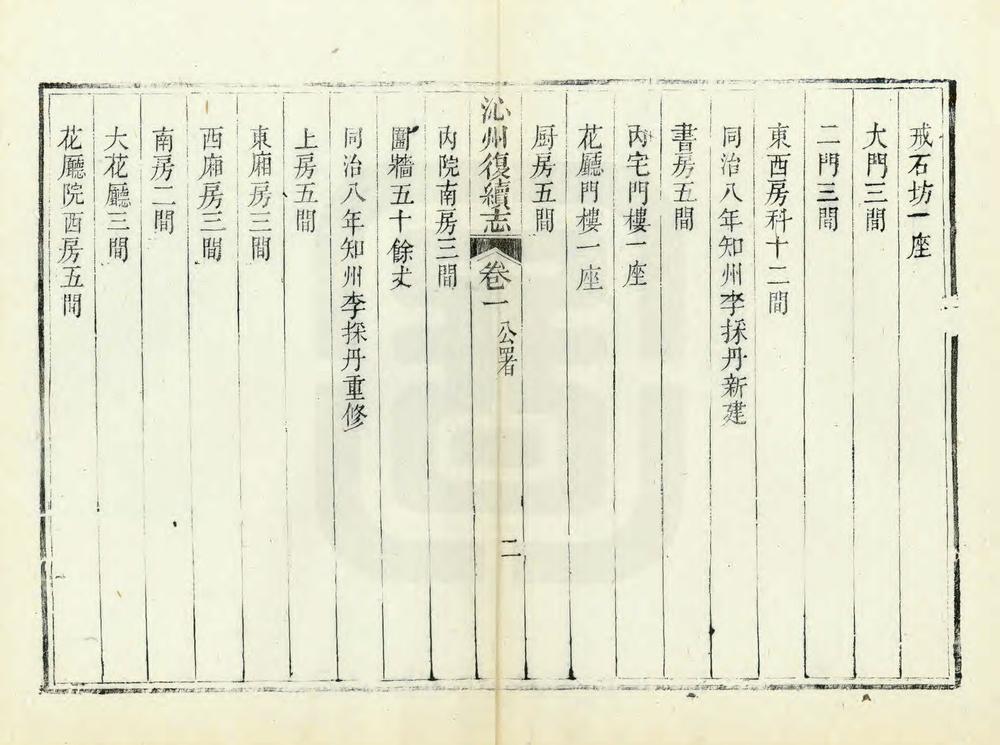 戒石坊一座
大門三間
二門三間
東西房科十二間
同治八年知州李採丹新建
書房五間
内宅門樓一座
花廳門樓一座
厨房五間
沁州復續志 卷一 公署 二
内院南房三間
圍牆五十餘丈
同治八年知州李採丹重修
上房五間
東廂房三間
西廂房三間
南房二間
大花廳三間
花廳院西房五間